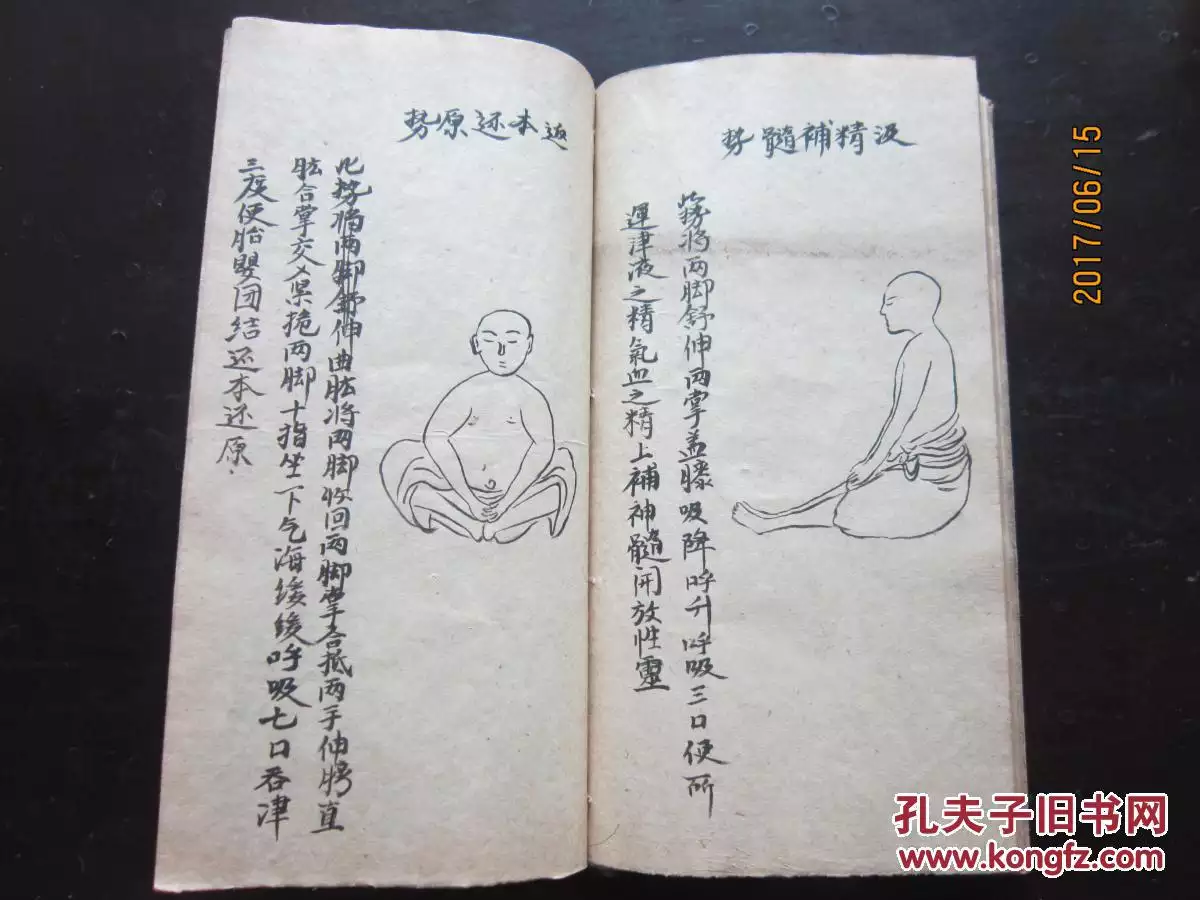 汲精補髓势
此势将两脚舒伸两掌盖膝吸降呼升呼吸三口使所
運津液之精氣血之精上補神髓開放性靈
返本还原势
此势将两脚舒伸曲肱将两脚收回两脚掌合抵两手伸膊直
肱合掌交叉杲掩两脚十指坐下气海缓缓呼吸七口吞津
三度使胎婴团结还本还原
2017/06/15
孔夫子旧书网
www.kongfz.com